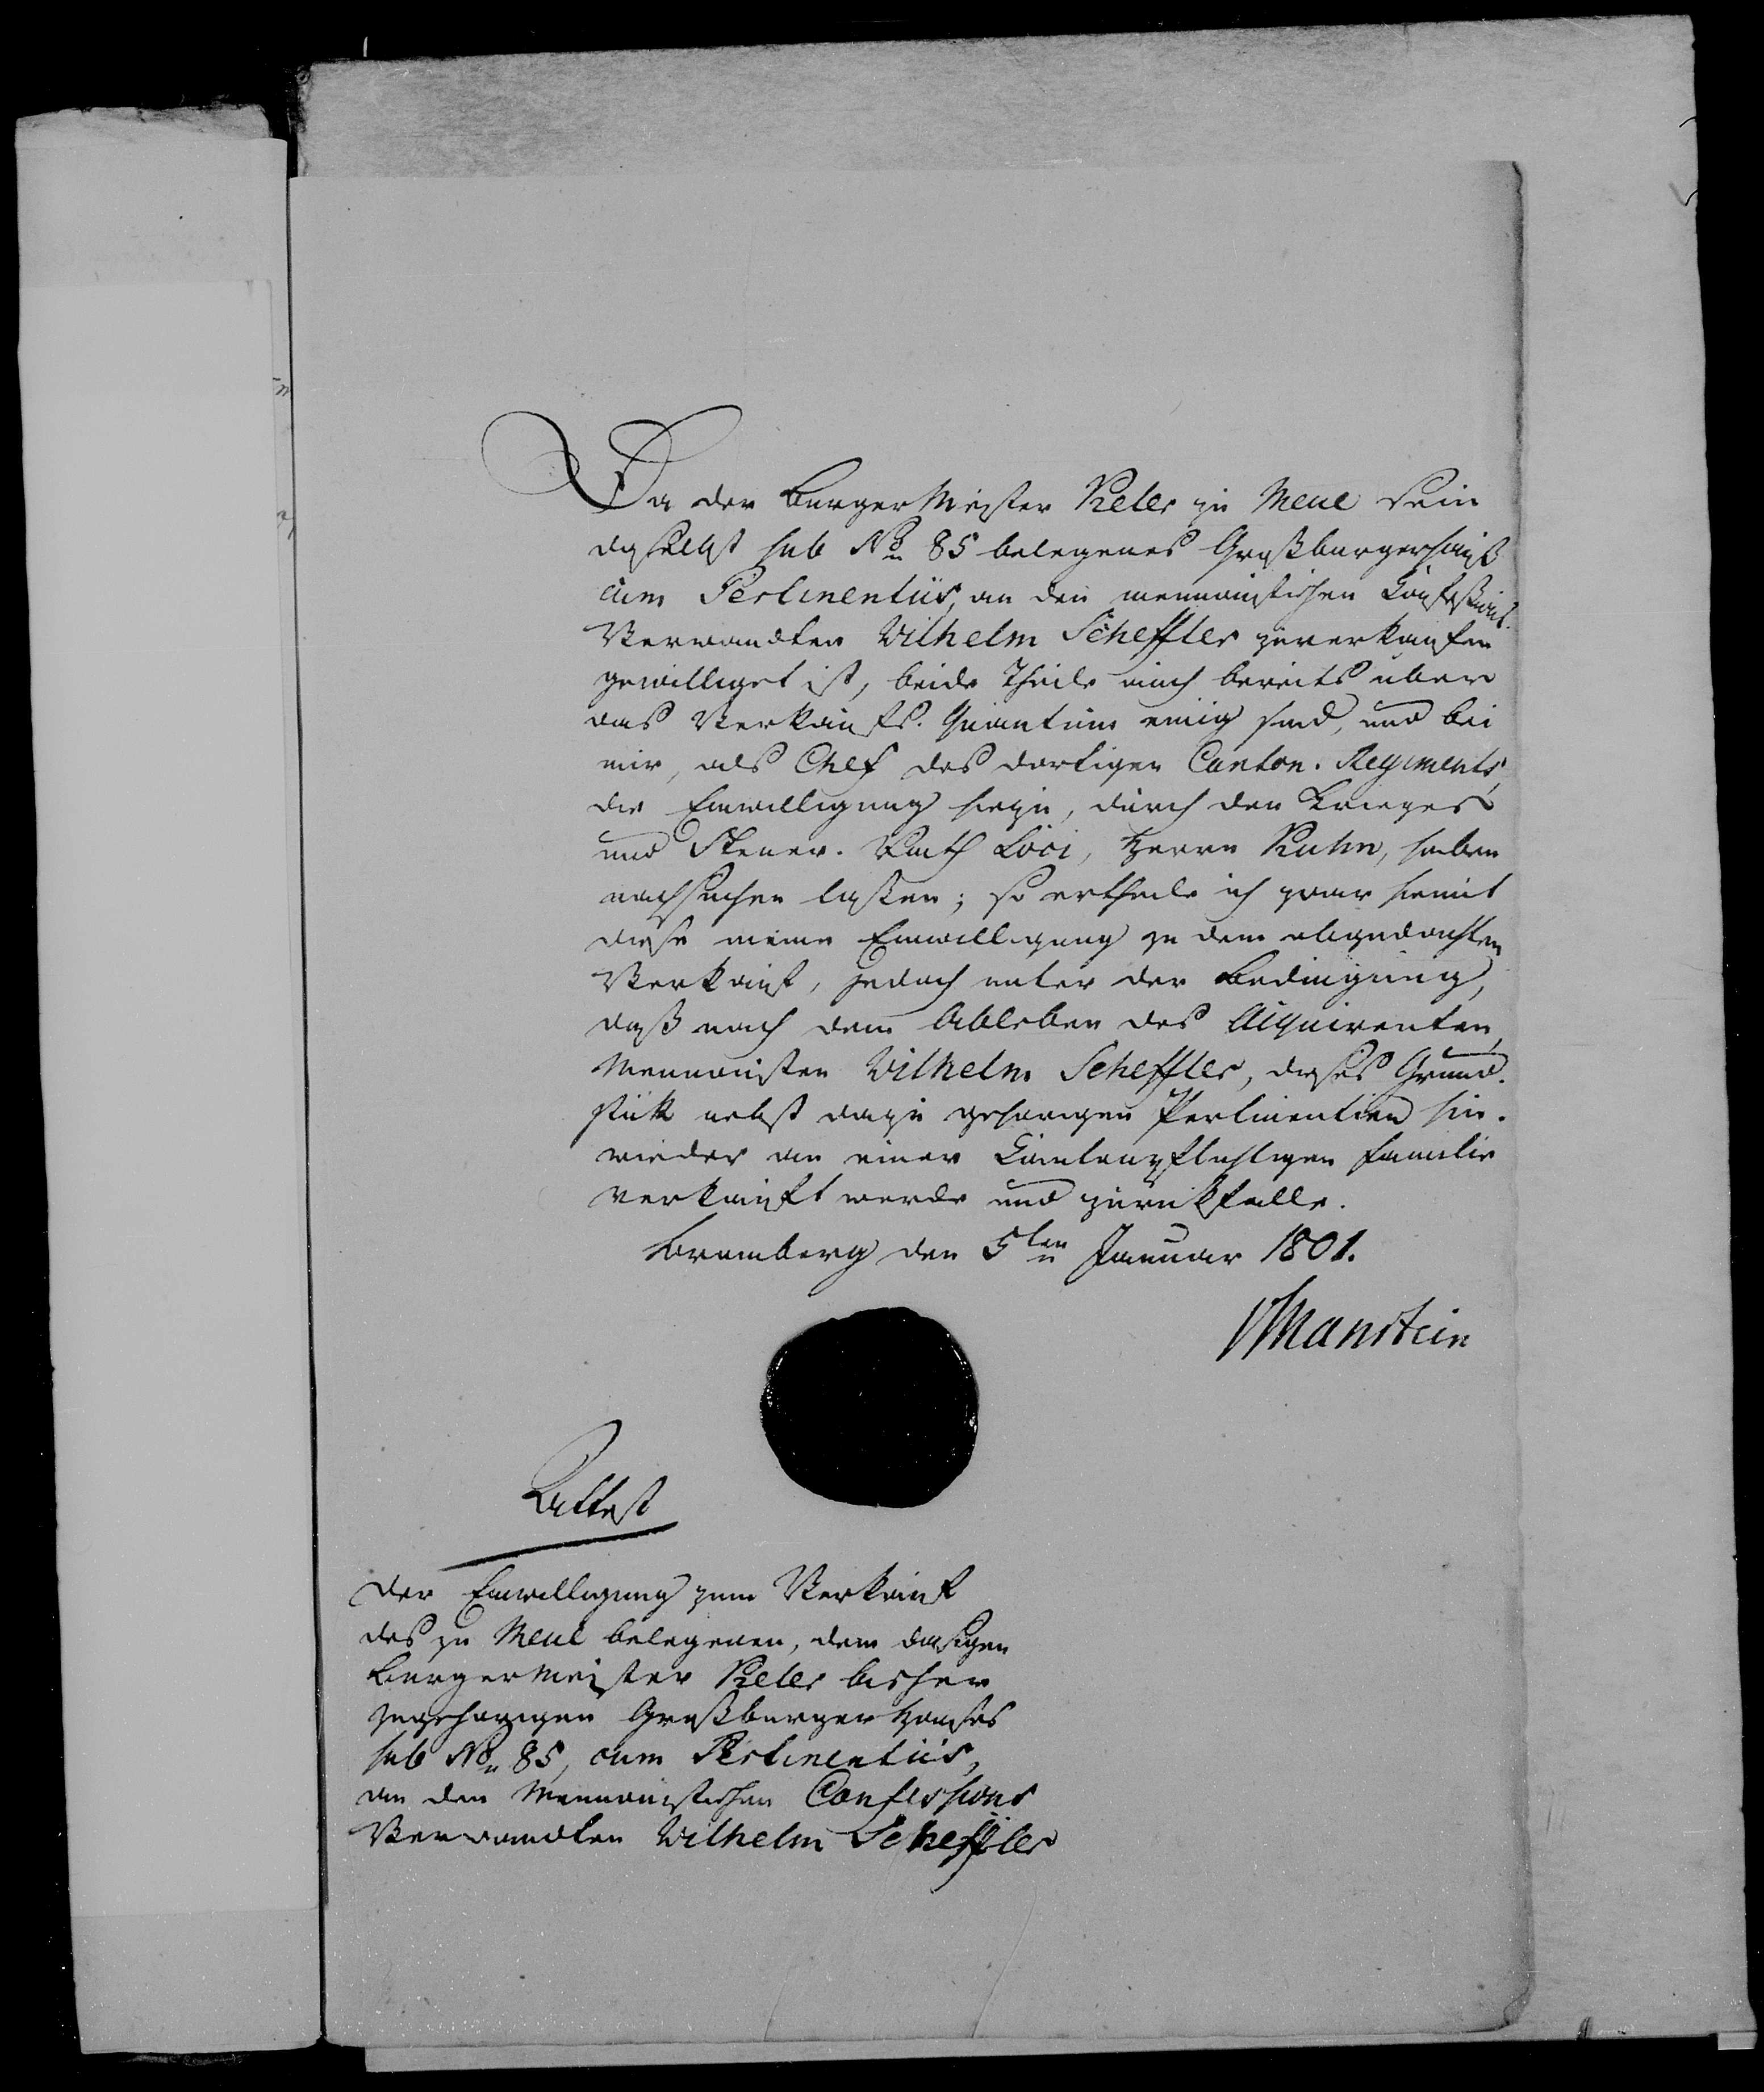 Da der BurgerMeister Reler zu Mewe sein
daselbst sub No 85 belegenes Großburgerhauß
cum Pertinentiis, an den mennonistischen Confessions-
Verwandten Wilhelm Scheffler zu verkaufen
gewilliget ist, beide Theile auch bereits über
das Verkaufs-Quantum einig sind, und bei
mir, als Chef des dortigen Canton-Regiments,
die Einwilligung hiezu, durch den Krieges
und Steuer-Rath Loci, Herrn Kuhn, haben
nachsuchen laßen; so ertheile ich zwar hiemit
diese meine Einwilligung zu dem abgedachten
Verkauf, jedoch unter der Bedingung,
daß nach dem Ableben des Acquirenten,
Mennonisten Wilhelm Scheffler, dieses Grund-
stük nebst dazu gehörigen Pertinentien hin-
wieder an einer Cantonpflichtigen Familie
verkauft werde und zurükfalle.
Bromberg den 5ten Januar 1801.
VManstein
Attest
der Einwilligung zum Verkauf
des zu Mewe belegenen, dem dasigen
BurgerMeister Reler bisher
zugehörigen Großburger Hauses
sub No 85, cum Pertinentiis,
an den Mennonistischen Confessions
Verwandten Wilhelm Scheffler